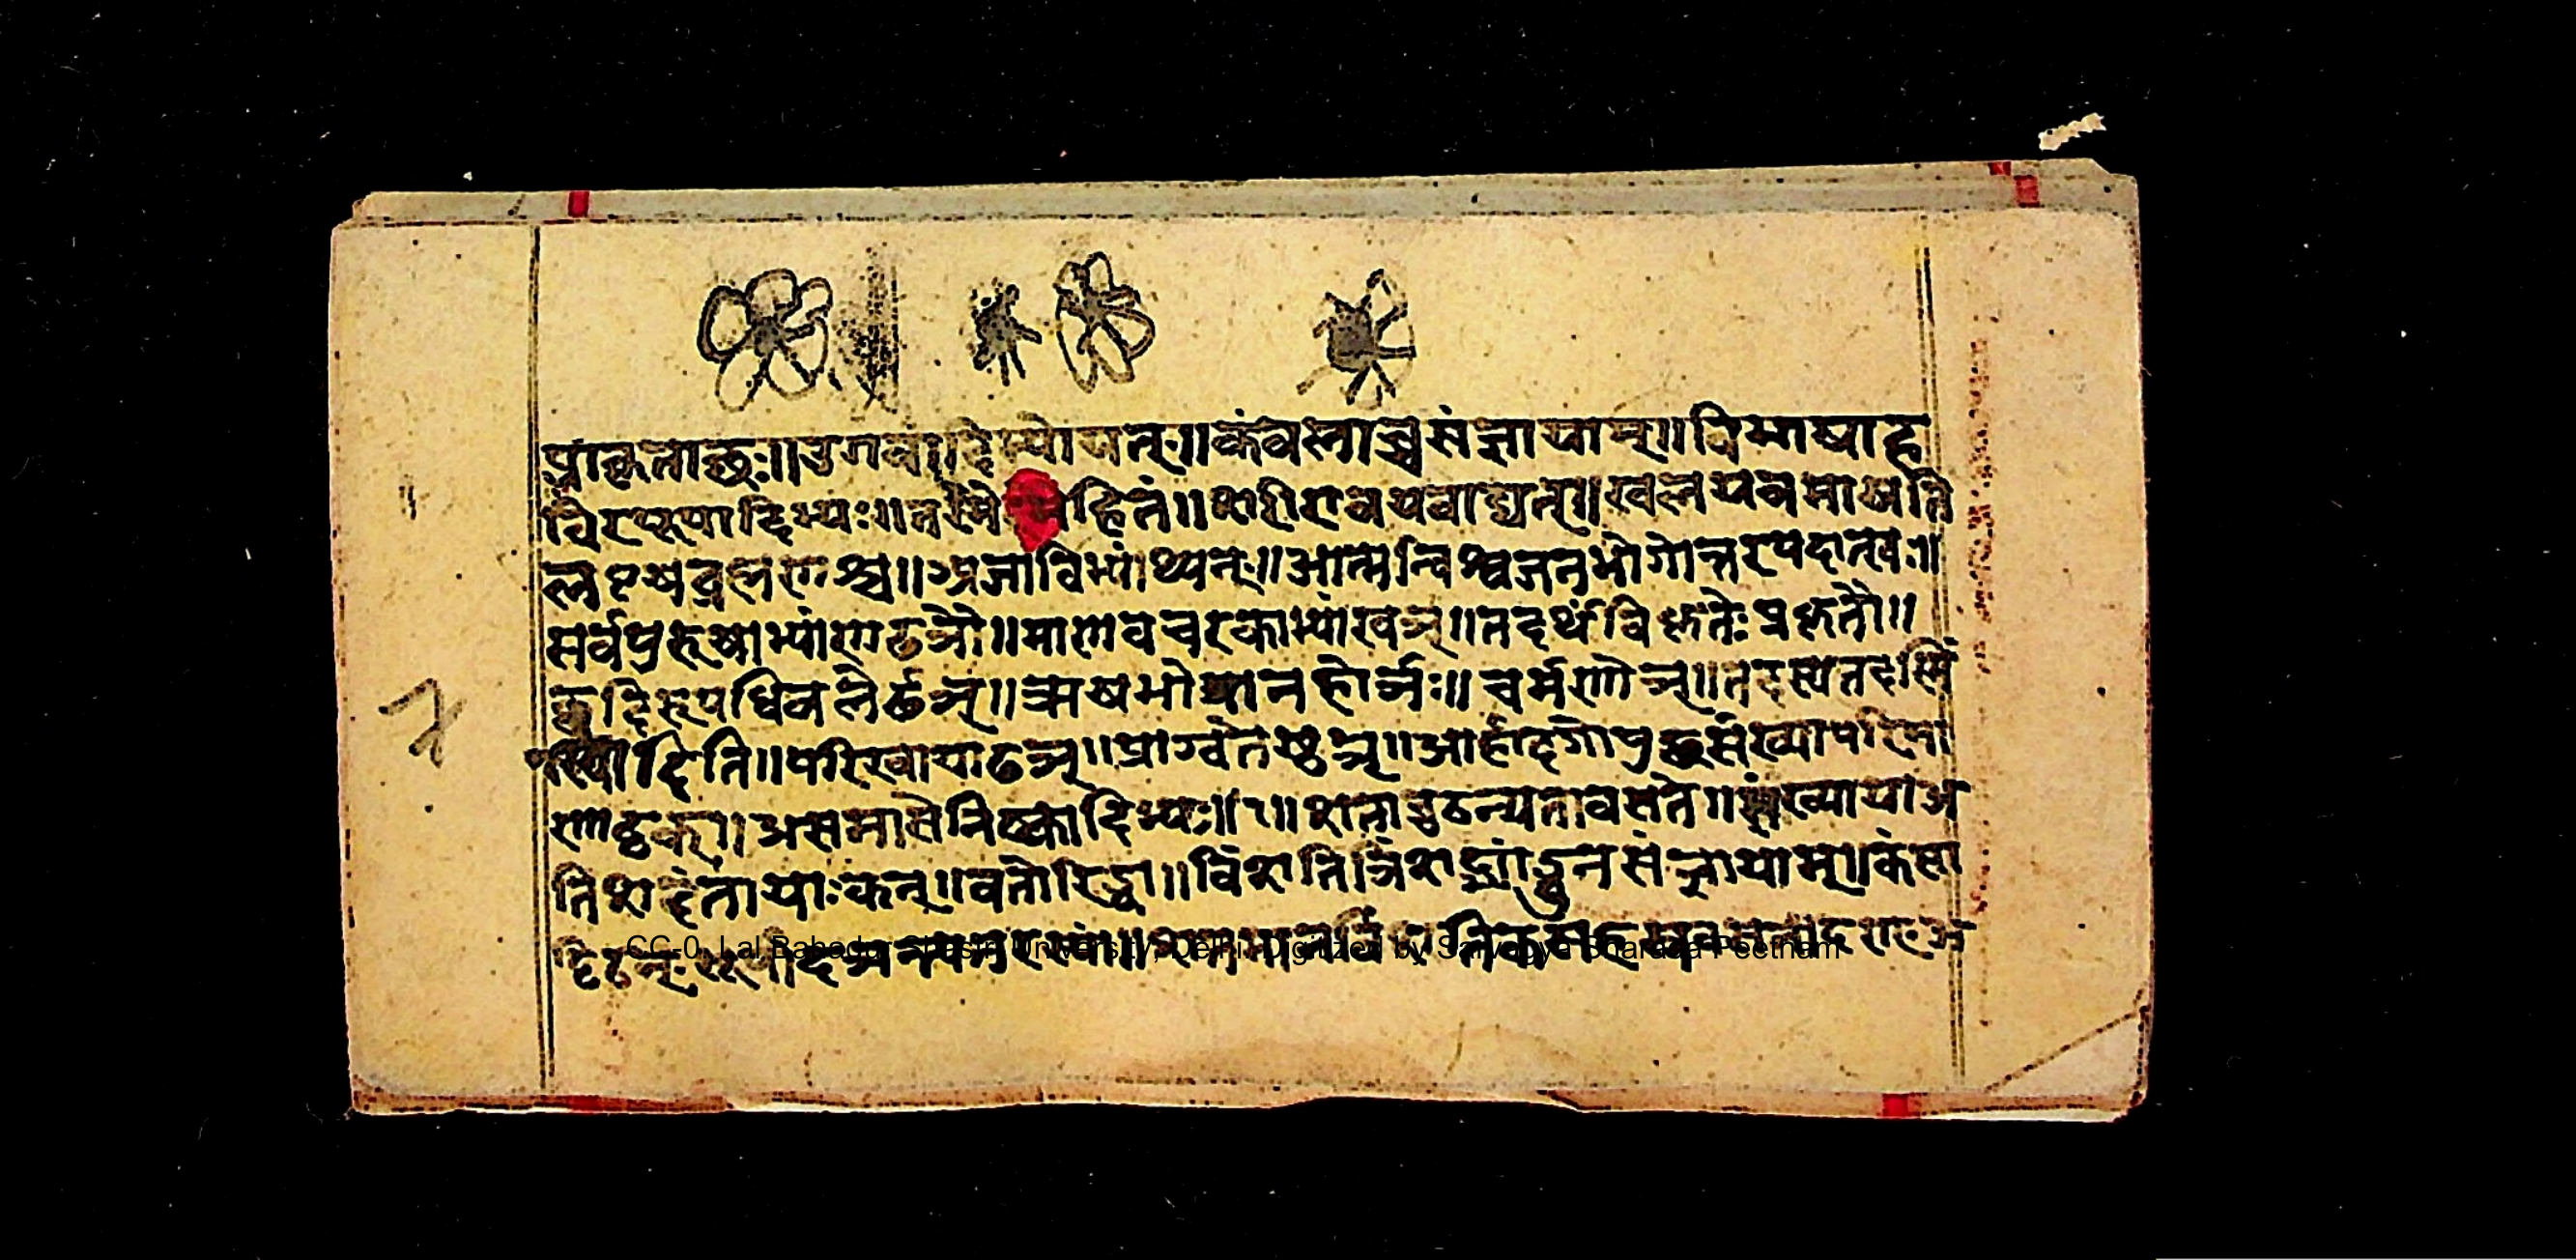 प्राक्क्रीताच्छः॥उगवादिभ्योयत्॥कंबलाच्चसंज्ञायाम्॥विभाषाह
विरपूपादिभ्यः॥तस्मै हितं॥शरीरावयवाद्यत्॥खलयवमाषति
लवृषब्रह्मणश्च॥अजाविभ्यांथ्यन्॥आत्मन्विश्वजनभोगोत्तरपदात्खः॥
सर्वपुरुषाभ्यांणढञौ॥माणवचरकाभ्यांखञ्॥तदर्थंविकृतेःप्रकृतौ॥
छदिरुपधिबलेर्ढञ्॥ऋषभोपानहोर्ञ्यः॥चर्मणोञ्॥तदस्यतदस्मिं
स्यादिति॥परिखायाढञ्॥प्राग्वतेष्ठञ्॥आर्हादगोपुच्छसंख्यापरिमा
णाट्ठक्॥असमासेनिष्कादिभ्यः॥१॥शताच्चठन्यतावशते॥संख्यायाअ
तिशदंतायाःकन्॥वतोरिड्वा॥विंशतित्रिंशद्भ्यांड्वुनसंज्ञायाम्॥कंसा
ट्टिठन्
CC-0. Lal Bahadur Shastri University, Delhi. Digitized by Sarvagya Sharada Peetham
7